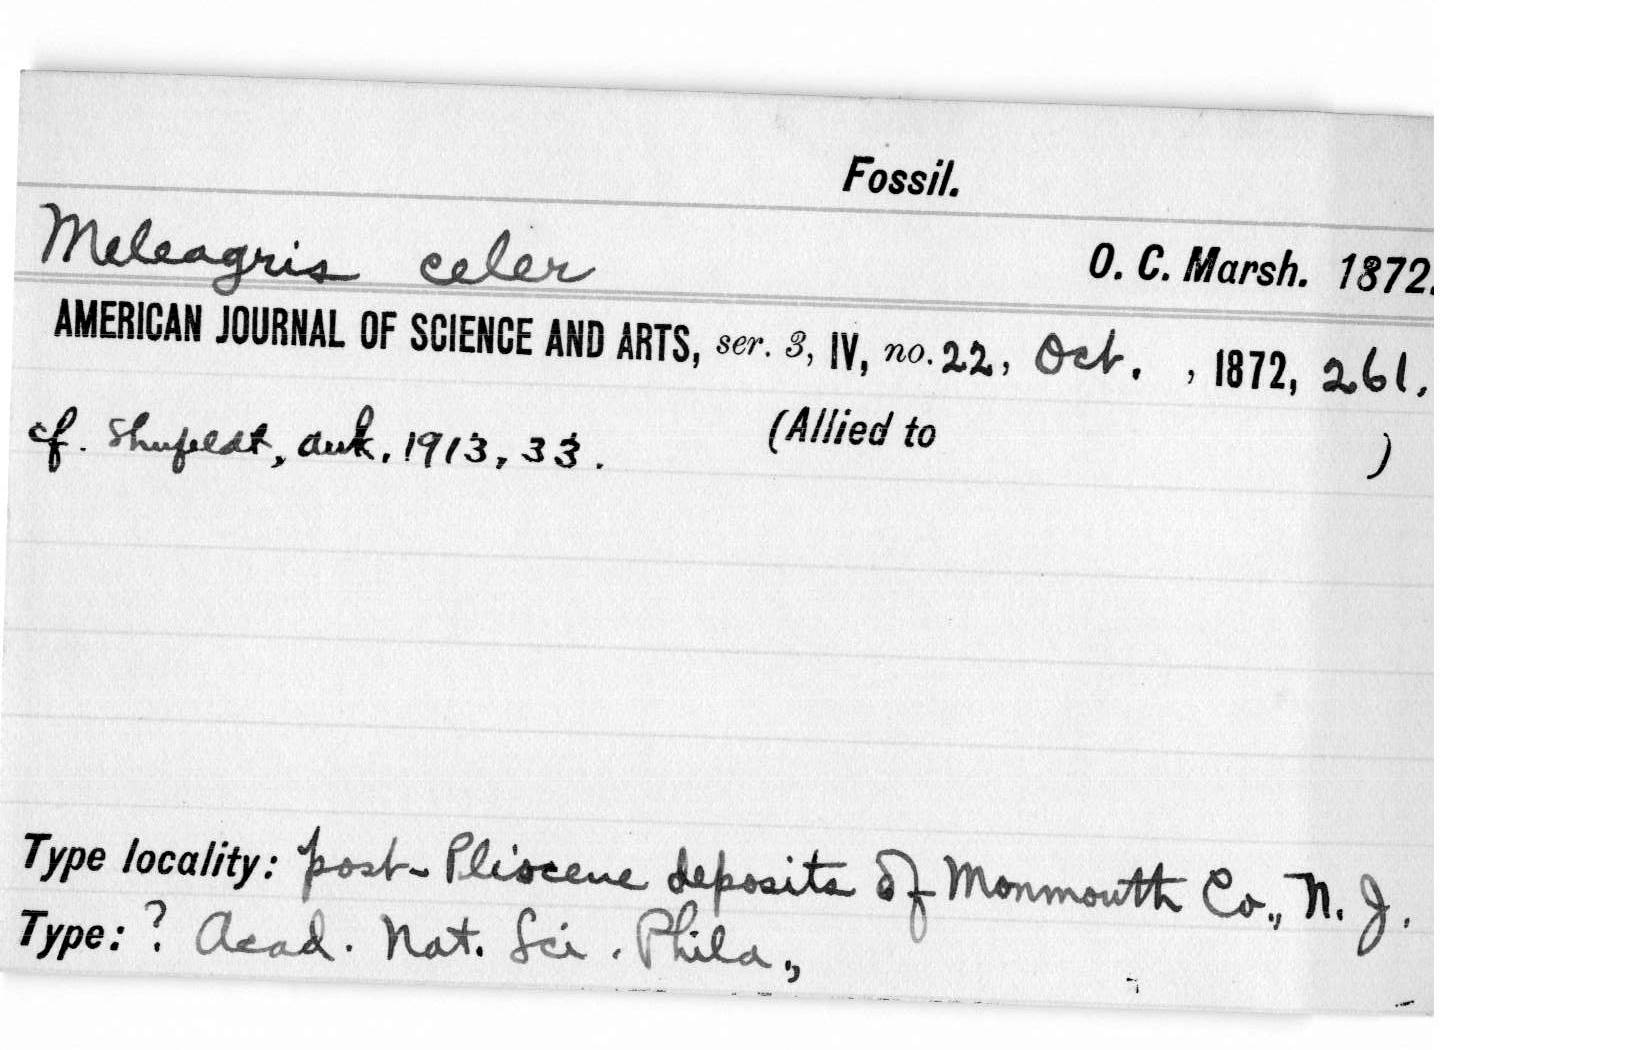 Fossil.
Meleagris celer O. C. Marsh. 1872.
AMERICAN JOURNAL OF SCIENCE AND ARTS, ser. 3, IV, no. 22, Oct. , 1872, 261.
cf. Shufeldt, Auk, 1913, 33. (Allied to )
Type locality: post-Pliocene deposits of Monmouth Co., N. J.
Type: ? Acad. Nat. Sci. Phila.,